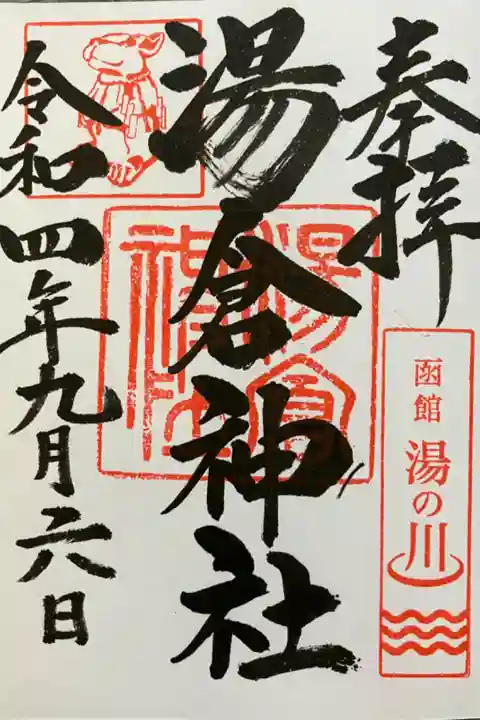 奉拝
函館 湯の川
湯倉神社
令和四年九月六日